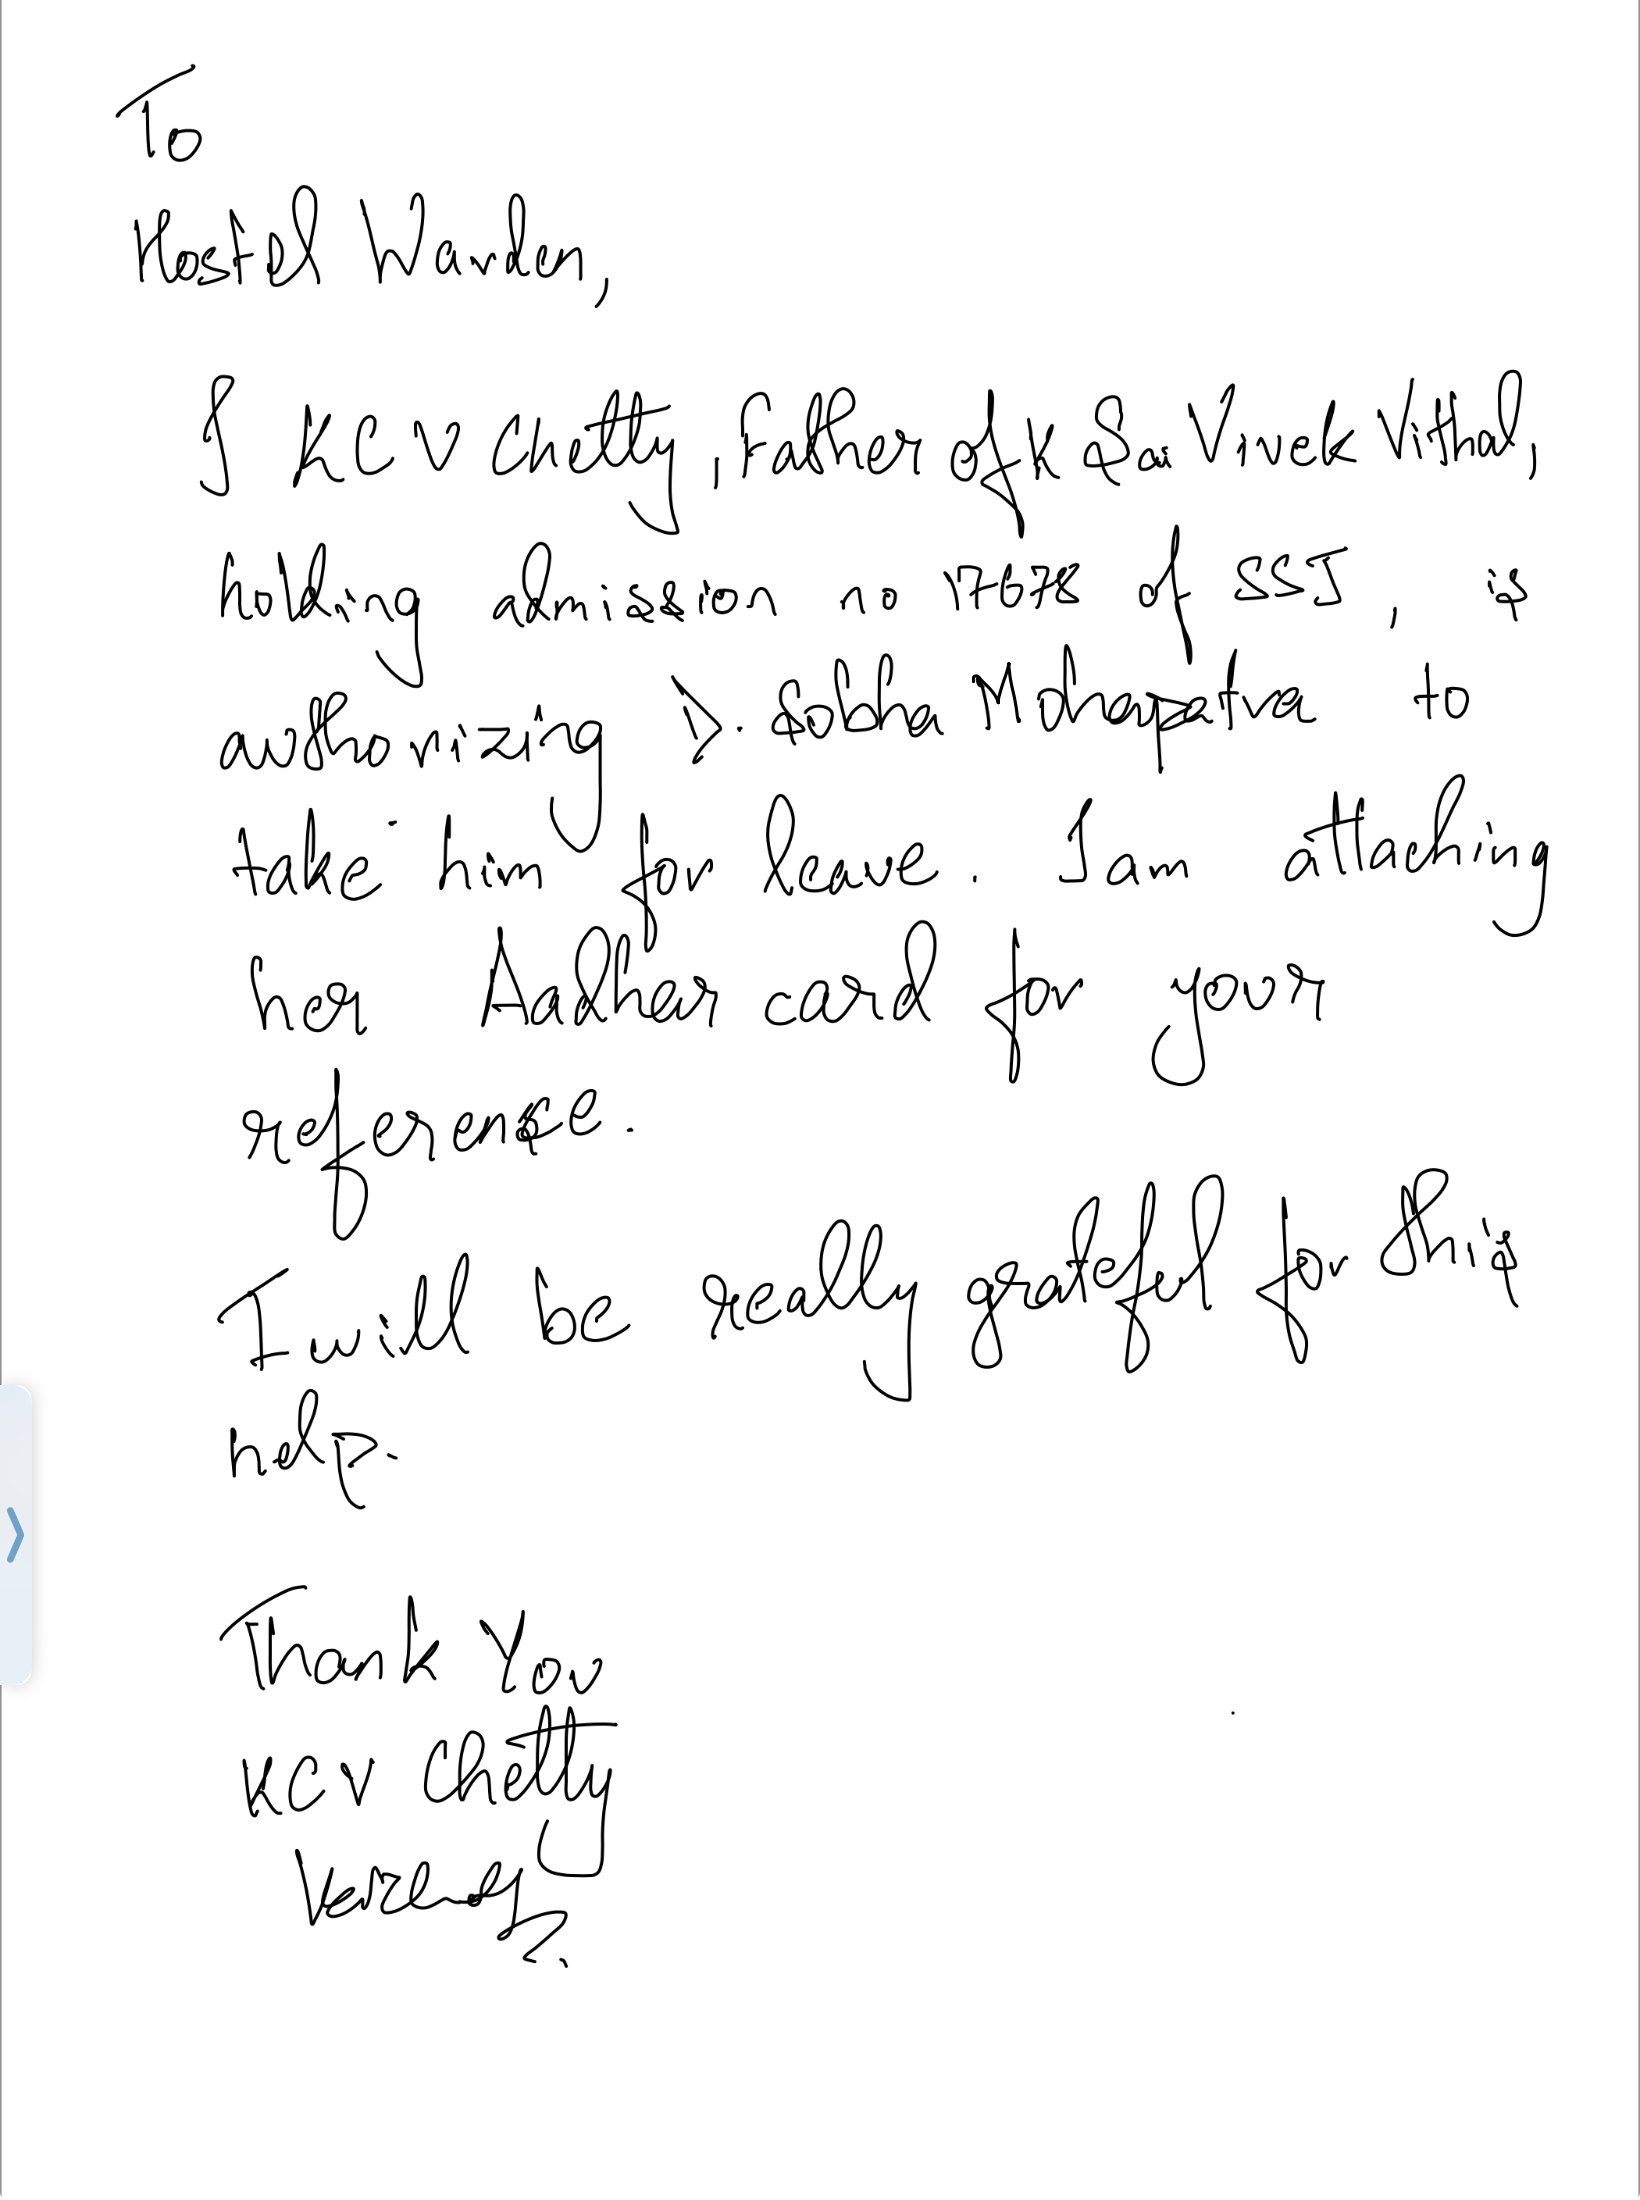 To
Hostel Warden,
I KCV Chetty, Father of K Sai Vivek Vithal,
holding admission no 17678 of SSJ, is
authorizing D. Sobha Mohapatra to
take him for leave. I am attaching
her Aadhar card for your
reference.
I will be really grateful for this
help.
Thank You
KCV Chetty